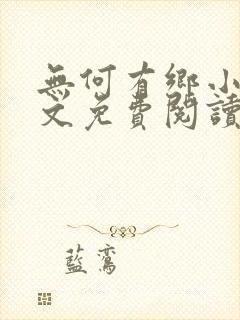 無何有鄉小
文免費閱讀
藍鸞